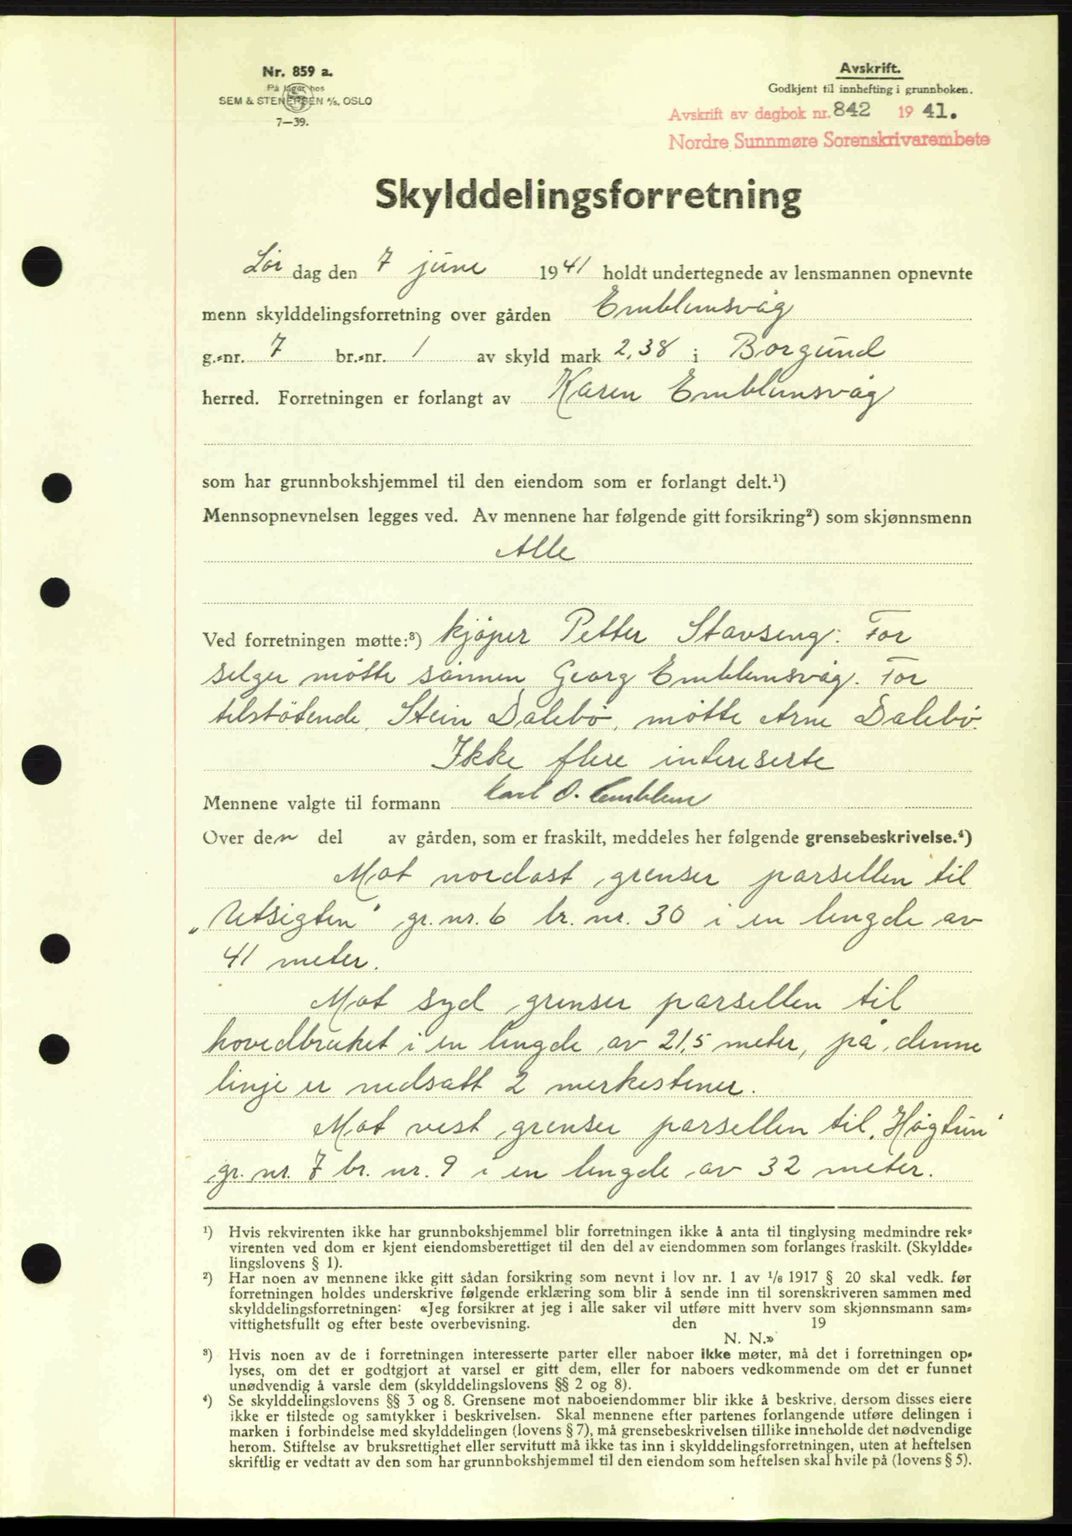 Nr. 859 a.
På lager hos
SEM & STENERSEN A/S. OSLO
7—39.
Avskrift.
Godkjent til innhefting i grunnboken.
Avskrift av dagbok nr. 842 1941.
Nordre Sunnmøre Sorenskrivarembete
Skylddelingsforretning
Lør dag den 7 june 1941 holdt undertegnede av lensmannen opnevnte
menn skylddelingsforretning over gården Emblemsvåg
g.=nr. 7 br.=nr. 1 av skyld mark 2,38 i Borgund
herred. Forretningen er forlangt av Karen Emblemsvåg
som har grunnbokshjemmel til den eiendom som er forlangt delt.¹)
Mennsopnevnelsen legges ved. Av mennene har følgende gitt forsikring²) som skjønnsmenn
Alle
Ved forretningen møtte:³) kjøper Petter Stavseng. For
selger møtte sønnen Georg Emblemsvåg. For
tilstøtende, Stein Dalebø, møtte Arne Dalebø.
Ikke flere intereserte
Mennene valgte til formann Karl O. Emblem
Over den del av gården, som er fraskilt, meddeles her følgende grensebeskrivelse.⁴)
Mot nordost grenser parsellen til
„Utsigten" gr. nr. 6 br. nr. 30 i en lengde av
41 meter.
Mot syd grenser parsellen til
hovedbruket i en lengde av 21,5 meter, på denne
linje er nedsatt 2 merkestener.
Mot vest grenser parsellen til „Høgtun"
gr. nr. 7 br. nr. 9 i en lengde av 32 meter.
¹) Hvis rekvirenten ikke har grunnbokshjemmel blir forretningen ikke å anta til tinglysing medmindre rek=
virenten ved dom er kjent eiendomsberettiget til den del av eiendommen som forlanges fraskilt. (Skyldde=
lingslovens § 1).
²) Har noen av mennene ikke gitt sådan forsikring som nevnt i lov nr. 1 av ¹/₆ 1917 § 20 skal vedk. før
forretningen holdes underskrive følgende erklæring som blir å sende inn til sorenskriveren sammen med
skylddelingsforretningen: «Jeg forsikrer at jeg i alle saker vil utføre mitt hverv som skjønnsmann sam=
vittighetsfullt og efter beste overbevisning. den 19
N. N.»
³) Hvis noen av de i forretningen interesserte parter eller naboer ikke møter, må det i forretningen op=
lyses, om det er godtgjort at varsel er gitt dem, eller for naboers vedkommende om det er funnet
unødvendig å varsle dem (skylddelingslovens §§ 2 og 8).
⁴) Se skylddelingslovens §§ 3 og 8. Grensene mot naboeiendommer blir ikke å beskrive, dersom disses eiere
ikke er tilstede og samtykker i beskrivelsen. Skal mennene efter partenes forlangende utføre delingen i
marken i forbindelse med skylddelingen (lovens § 7), må grensebeskrivelsen tillike inneholde det nødvendige
herom. Stiftelse av bruksrettighet eller servitutt må ikke tas inn i skylddelingsforretningen, uten at heftelsen
skriftlig er vedtatt av den som har grunnbokshjemmel til den eiendom som heftelsen skal hvile på (lovens § 5).